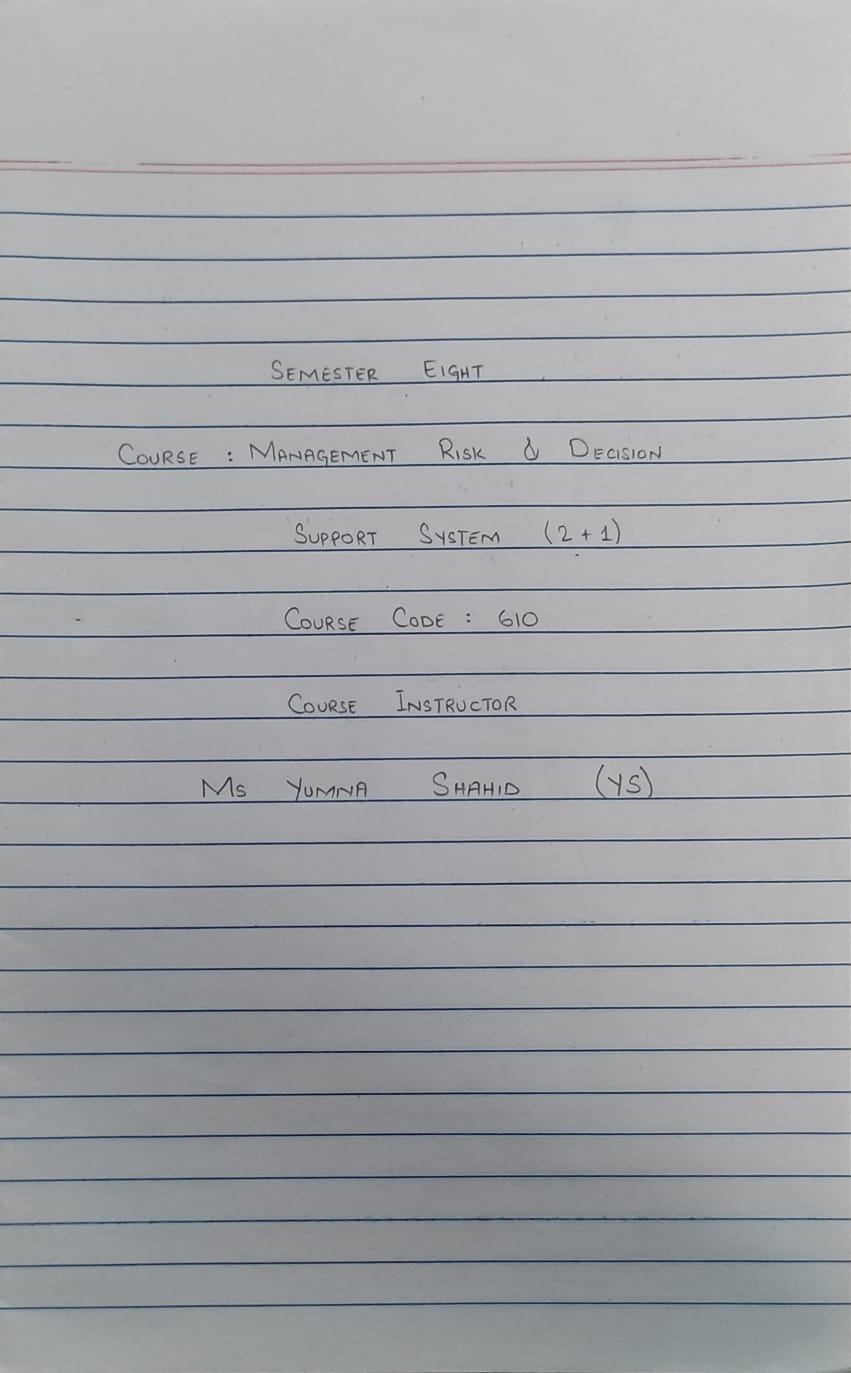 SEMESTER EIGHT
COURSE : MANAGEMENT RISK & DECISION
SUPPORT SYSTEM (2 + 1)
COURSE CODE : 610
COURSE INSTRUCTOR
MS YUMNA SHAHID (YS)